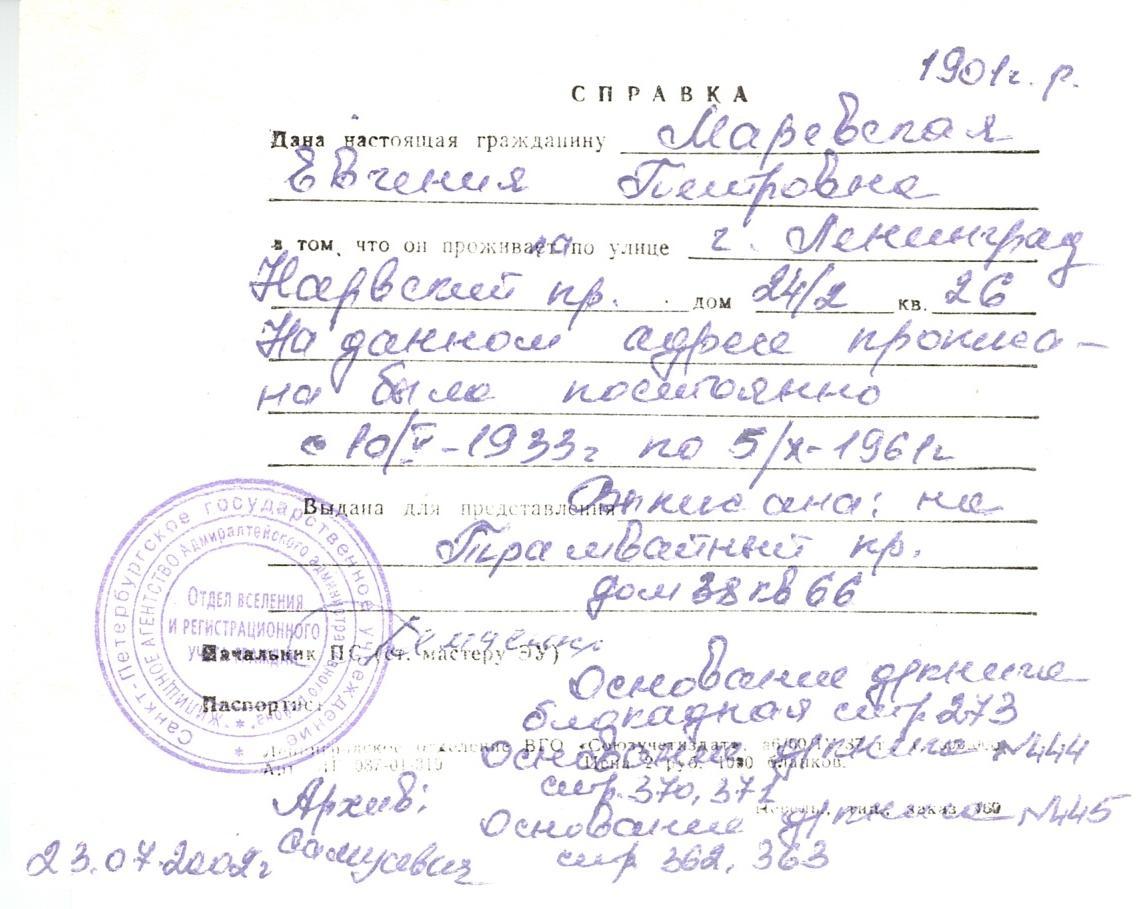 1901г. р.
СПРАВКА
Дана настоящая гражданину Маревская
Евгения Петровна
в том, что он проживает по улице г. Ленинград
Нарвский пр. дом 24/2 кв. 26
На данном адресе прописа-
на была постоянно
с 10/V-1933г по 5/X-1961г
Выдана для представления Выписана: на
Трамвайный пр.
дом 38 кв 66
Санкт-Петербургское государственное учреждение
"ЖИЛИЩНОЕ АГЕНТСТВО Адмиралтейского административного района"
ОТДЕЛ ВСЕЛЕНИЯ
И РЕГИСТРАЦИОННОГО
Начальник ПС (ст. мастеру ЭУ)
Основание д/книга
Паспортист
блокадная стр 273
отделение ВГО «Союзучетиздат»
Основание д/книга №444
Арт. П 087-01-310 Цена 2 руб. 1000 бланков.
стр. 370, 371
Архив:
Основание д/книга №445
23.07.2002г
стр 362, 363